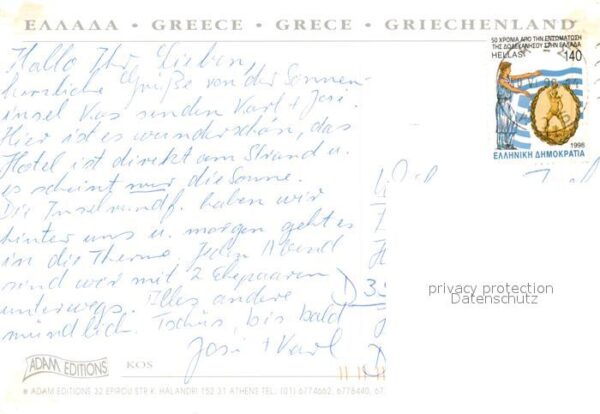 ΕΛΛΑΔΑ • GREECE • GRECE • GRIECHENLAND
50 ΧΡΟΝΙΑ ΑΠΟ ΤΗΝ ΕΝΣΩΜΑΤΩΣΗ
ΤΗΣ ΔΩΔΕΚΑΝΗΣΟΥ ΣΤΗΝ ΕΛΛΑΔΑ
HELLAS 140
1998
ΕΛΛΗΝΙΚΗ ΔΗΜΟΚΡΑΤΙΑ
Hallo Ihr Lieben,
herzliche Grüße von der Sonnen-
insel Kos senden Karl + Josi.
Hier ist es wunderschön, das
Hotel ist direkt am Strand u.
es scheint nur die Sonne.
Die Inselrundf. haben wir
hinter uns u. morgen geht es
in die Therme. Jeden Abend
sind wir mit 2 Ehepaaren
unterwegs. Alles andere
mündlich. Tschüs, bis bald
Josi + Karl
D 35
privacy protection
Datenschutz
ADAM EDITIONS
KOS
ADAM EDITIONS 32 EPIROU STR K. HALANDRI 152 31 ATHENS TEL.: (01) 6774662, 6778440, 67